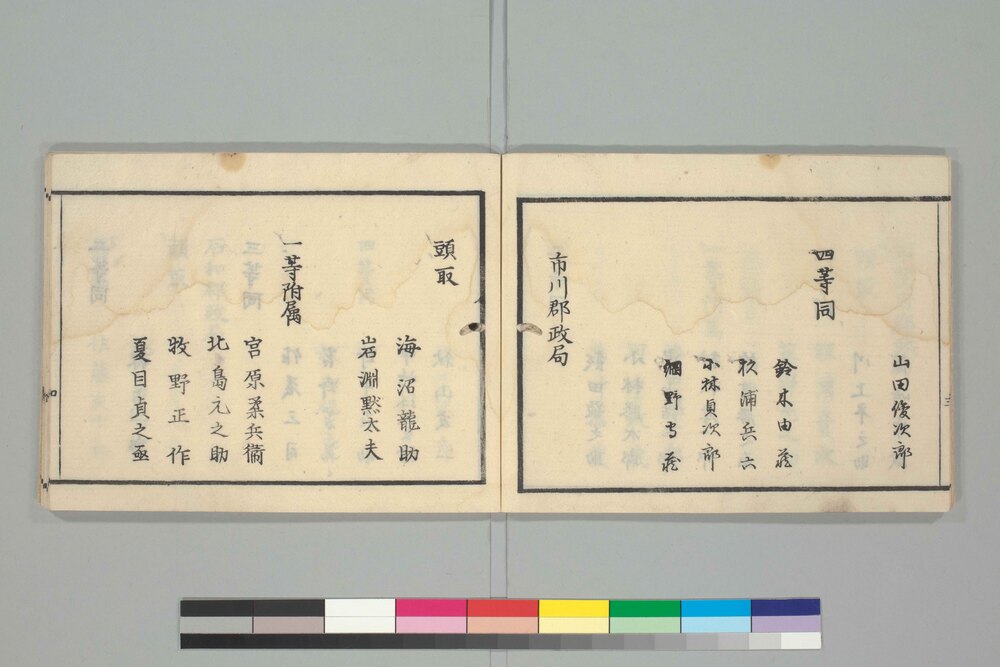 山田俊次郎
四等同
鈴木由蔵
杉浦兵六
小林貞次郎
細野専蔵
市川郡政局
頭取
海沼龍助
岩淵黙太夫
一等附属
宮原柔兵衛
北島元之助
牧野正作
夏目貞之亟